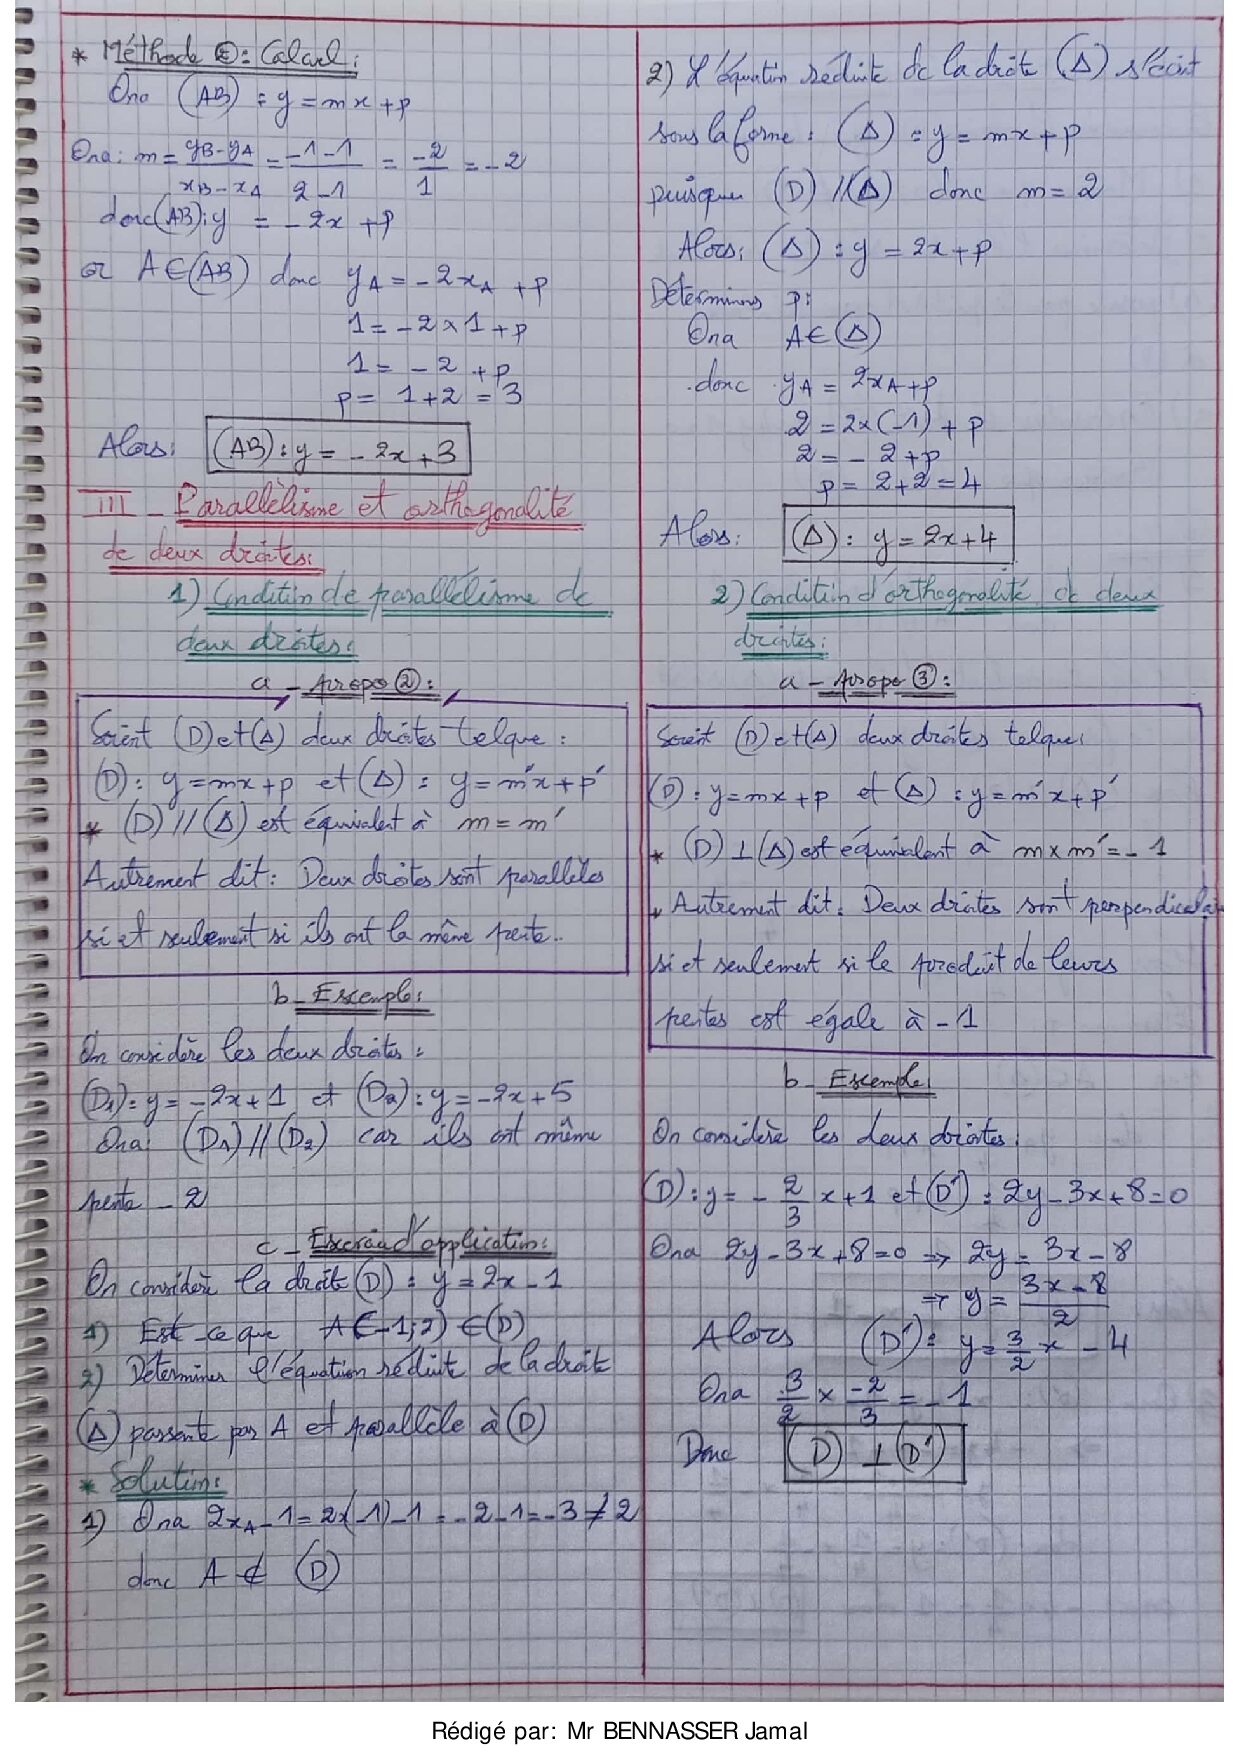 * Méthode ②: Calcul:
Ona (AB) : y = mx + p
Ona: m = yB - yA / xB - xA = -1 - 1 / 2 - 1 = -2 / 1 = -2
donc (AB): y = -2x + p
or A ∈ (AB) donc yA = -2xA + p
1 = -2 × 1 + p
1 = -2 + p
p = 1 + 2 = 3
Alors: (AB) : y = -2x + 3
III - Parallélisme et orthogonalité
de deux droites:
1) Condition de parallélisme de
deux droites:
a - Propo ②:
Soient (D) et (Δ) deux droites telque :
(D): y = mx + p et (Δ) : y = m'x + p'
* (D) // (Δ) est équivalent à m = m'
Autrement dit: Deux droites sont parallèles
si et seulement si ils ont la même pente..
b - Exemple:
On considère les deux droites :
(D1): y = -2x + 1 et (D2) : y = -2x + 5
Ona: (D1) // (D2) car ils ont même
pente - 2
c - Exercice d'application:
On considère la droite (D) : y = 2x - 1
1) Est-ce que A(-1; 2) ∈ (D)
2) Déterminer l'équation réduite de la droite
(Δ) passante par A et parallèle à (D)
* Solution:
1) Ona 2xA - 1 = 2×(-1) - 1 = -2 - 1 = -3 ≠ 2
donc A ∉ (D)
2) L'équation réduite de la droite (Δ) s'écrit
sous la forme : (Δ) : y = mx + p
puisque (D) // (Δ) donc m = 2
Alors: (Δ) : y = 2x + p
Déterminons p:
Ona A ∈ (Δ)
donc yA = 2xA + p
2 = 2×(-1) + p
2 = -2 + p
p = 2 + 2 = 4
Alors: (Δ) : y = 2x + 4
2) Condition d'orthogonalité de deux
droites:
a - Propo ③:
Soient (D) et (Δ) deux droites telque:
(D) : y = mx + p et (Δ) : y = m'x + p'
* (D) ⊥ (Δ) est équivalent à m × m' = -1
* Autrement dit: Deux droites sont perpendicula
si et seulement si le produit de leurs
pentes est égale à - 1
b - Exemple:
On considère les deux droites:
(D) : y = - 2/3 x + 1 et (D') : 2y - 3x + 8 = 0
Ona 2y - 3x + 8 = 0 ⇒ 2y = 3x - 8
⇒ y = 3x - 8 / 2
Alors (D') : y = 3/2 x - 4
Ona 3/2 × -2/3 = -1
Donc (D) ⊥ (D')
Rédigé par: Mr BENNASSER Jamal